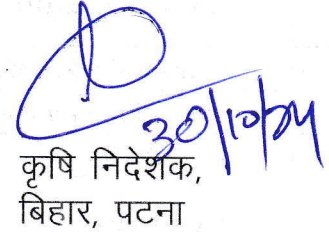 30/10/24
कृषि निदेशक,
बिहार, पटना